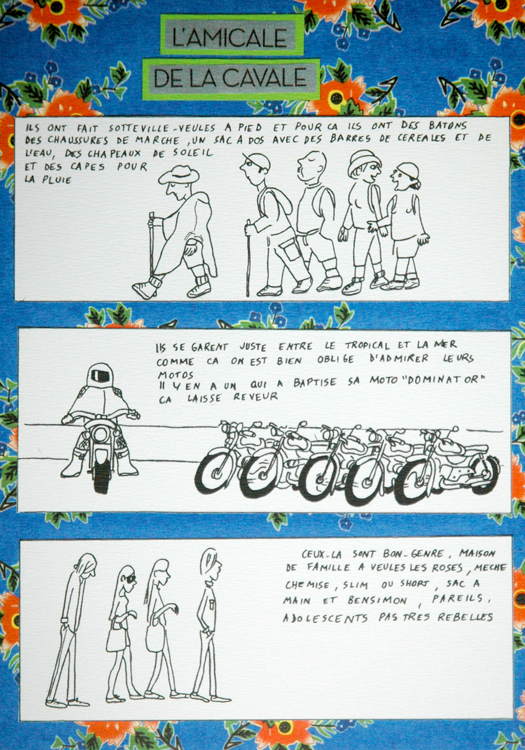 L'AMICALE
DE LA CAVALE
ILS ONT FAIT SOTTEVILLE-VEULES A PIED ET POUR CA ILS ONT DES BATONS
DES CHAUSSURES DE MARCHE, UN SAC A DOS AVEC DES BARRES DE CEREALES ET DE
L'EAU, DES CHAPEAUX DE SOLEIL
ET DES CAPES POUR
LA PLUIE
ILS SE GARENT JUSTE ENTRE LE TROPICAL ET LA MER
COMME CA ON EST BIEN OBLIGE D'ADMIRER LEURS
MOTOS
IL Y EN A UN QUI A BAPTISE SA MOTO "DOMINATOR"
CA LAISSE REVEUR
CEUX-LA SONT BON-GENRE, MAISON
DE FAMILLE A VEULES LES ROSES, MECHE
CHEMISE, SLIM OU SHORT, SAC A
MAIN ET BENSIMON, PAREILS,
ADOLESCENTS PAS TRES REBELLES